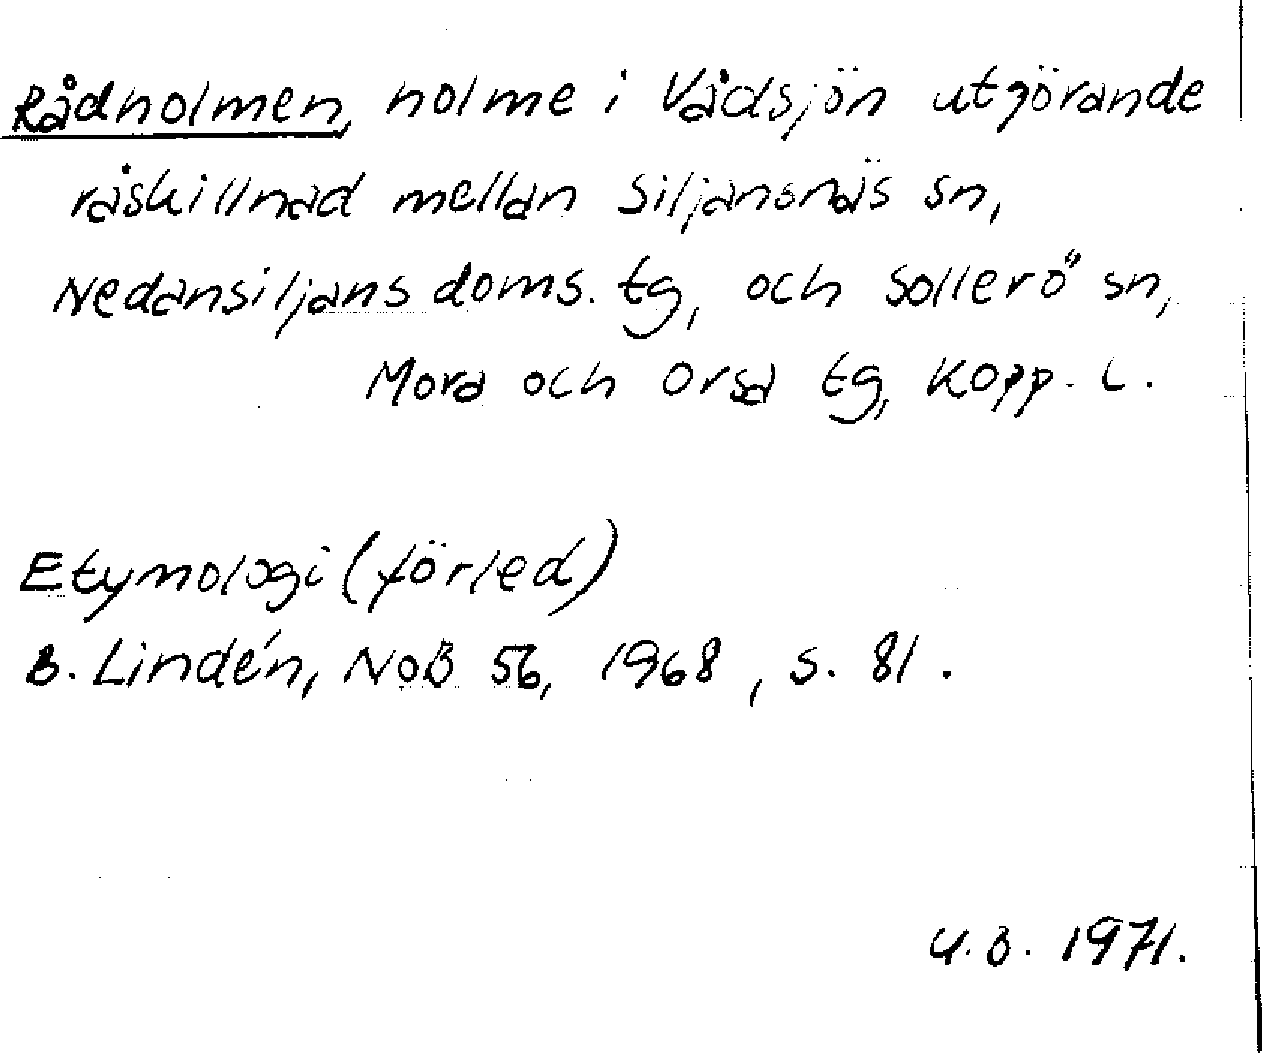 Rådholmen, holme i Vådsjön utgörande
råskillnad mellan Siljansnäs sn,
Nedansiljans doms. tg, och Sollerö sn,
Mora och Orsa tg, Kopp. L.
Etymologi (förled)
B. Lindén, NoB 56, 1968, s. 81.
U.B. 1971.